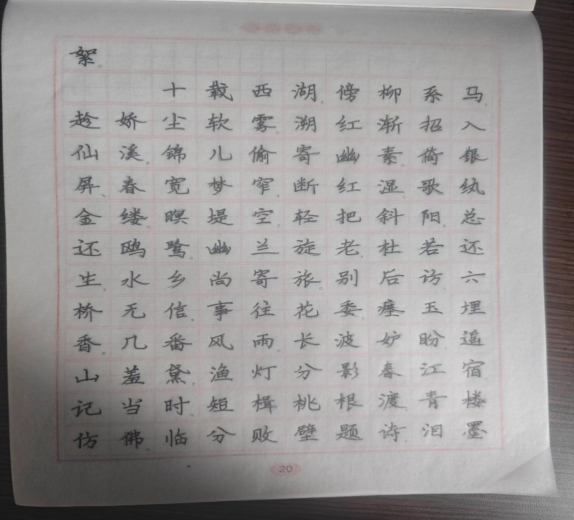 絮
十载西湖傍柳系马
趁娇尘软雾溯红渐招入
仙溪锦儿偷寄幽素倚银
屏春宽梦窄断红湿歌纨
金缕暝堤空轻把斜阳总
还鸥鹭幽兰旋老杜若还
生水乡尚寄旅别后访六
桥无信事往花委瘗玉埋
香几番风雨长波妒盼遥
山羞黛渔灯分影春江宿
记当时短楫桃根渡青楼
仿佛临分败壁题诗泪墨
20